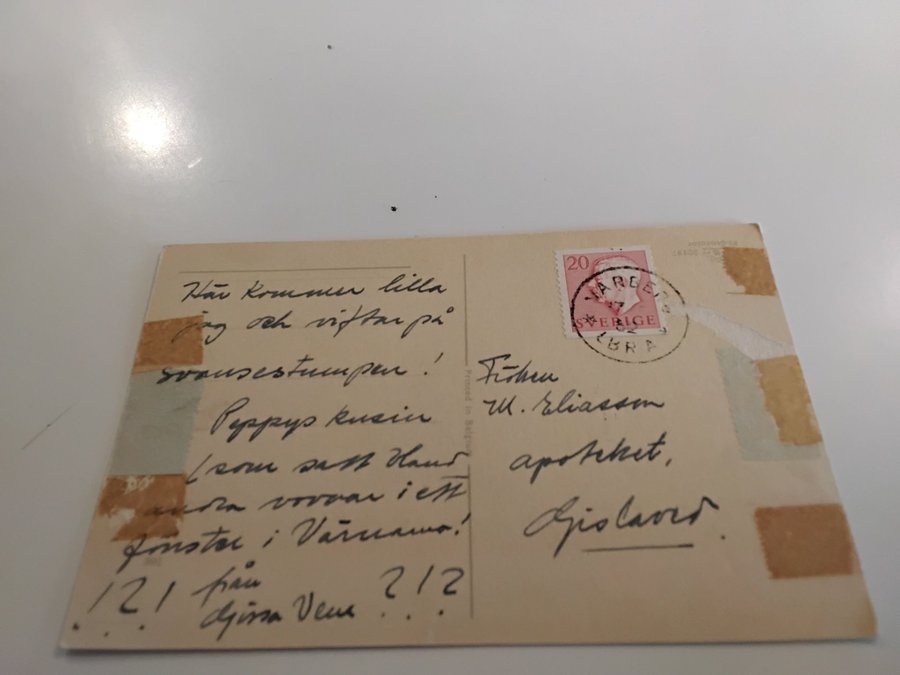 Här kommer lilla
jag och viftar på
svansestumpen!
Peppys kusin
(som satt bland
andra vovvar i ett
fönster i Värnamo!
!?! från ?!?
Gissa Vem
Printed in Belgium
20
SVERIGE
VARBERG
Fröken
M. Eliasson
apoteket,
Gislaved.